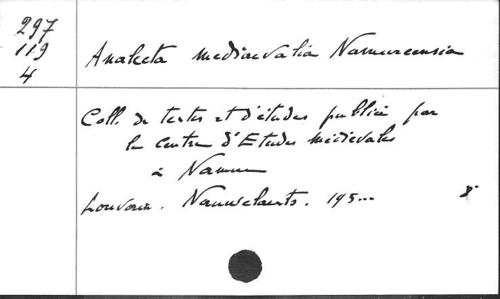 297
119
4
Analecta mediaevalia Namurcensia
Coll. de textes et d'études publiée par
le centre d'Etudes médiévales
à Namur
Louvain. Nauwelaerts. 195...
8°